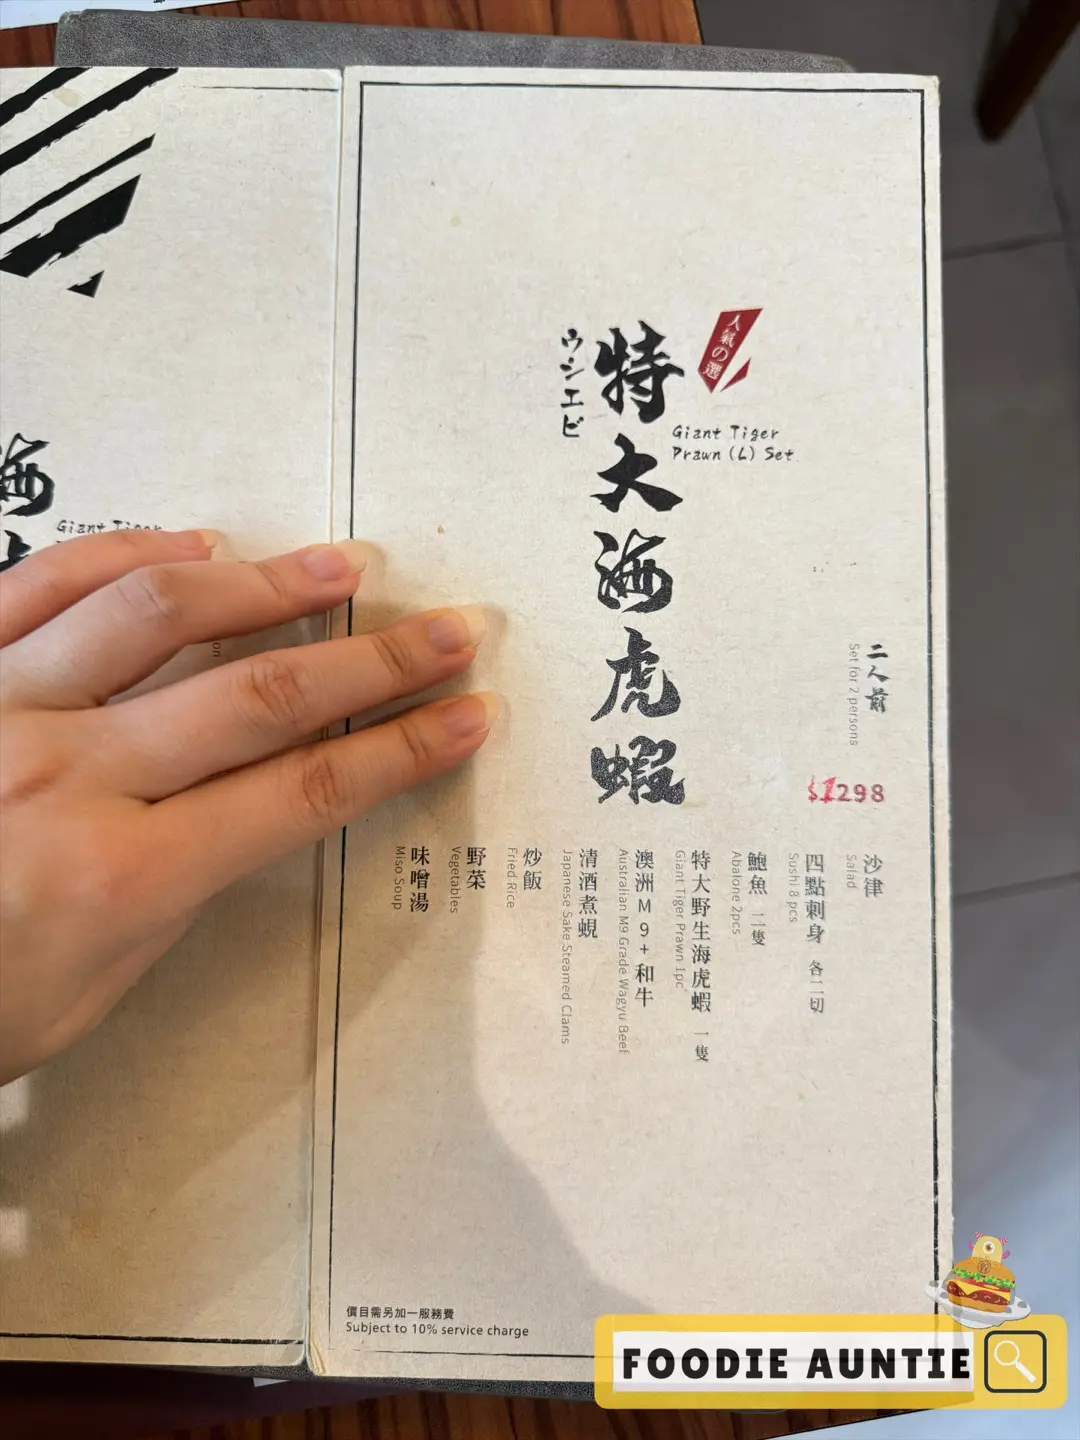 人氣の選
特大海虎蝦
ウシエビ
Giant Tiger
Prawn (L) Set
二人前
Set for 2 persons
$1298
沙律
Salad
四點刺身 各二切
Sushi 8 pcs
鮑魚 二隻
Abalone 2pcs
特大野生海虎蝦 一隻
Giant Tiger Prawn 1pc
澳洲M9+和牛
Australian M9 Grade Wagyu Beef
清酒煮蜆
Japanese Sake Steamed Clams
炒飯
Fried Rice
野菜
Vegetables
味噌湯
Miso Soup
價目需另加一服務費
Subject to 10% service charge
海
Giant Tiger
on
FOODIE AUNTIE